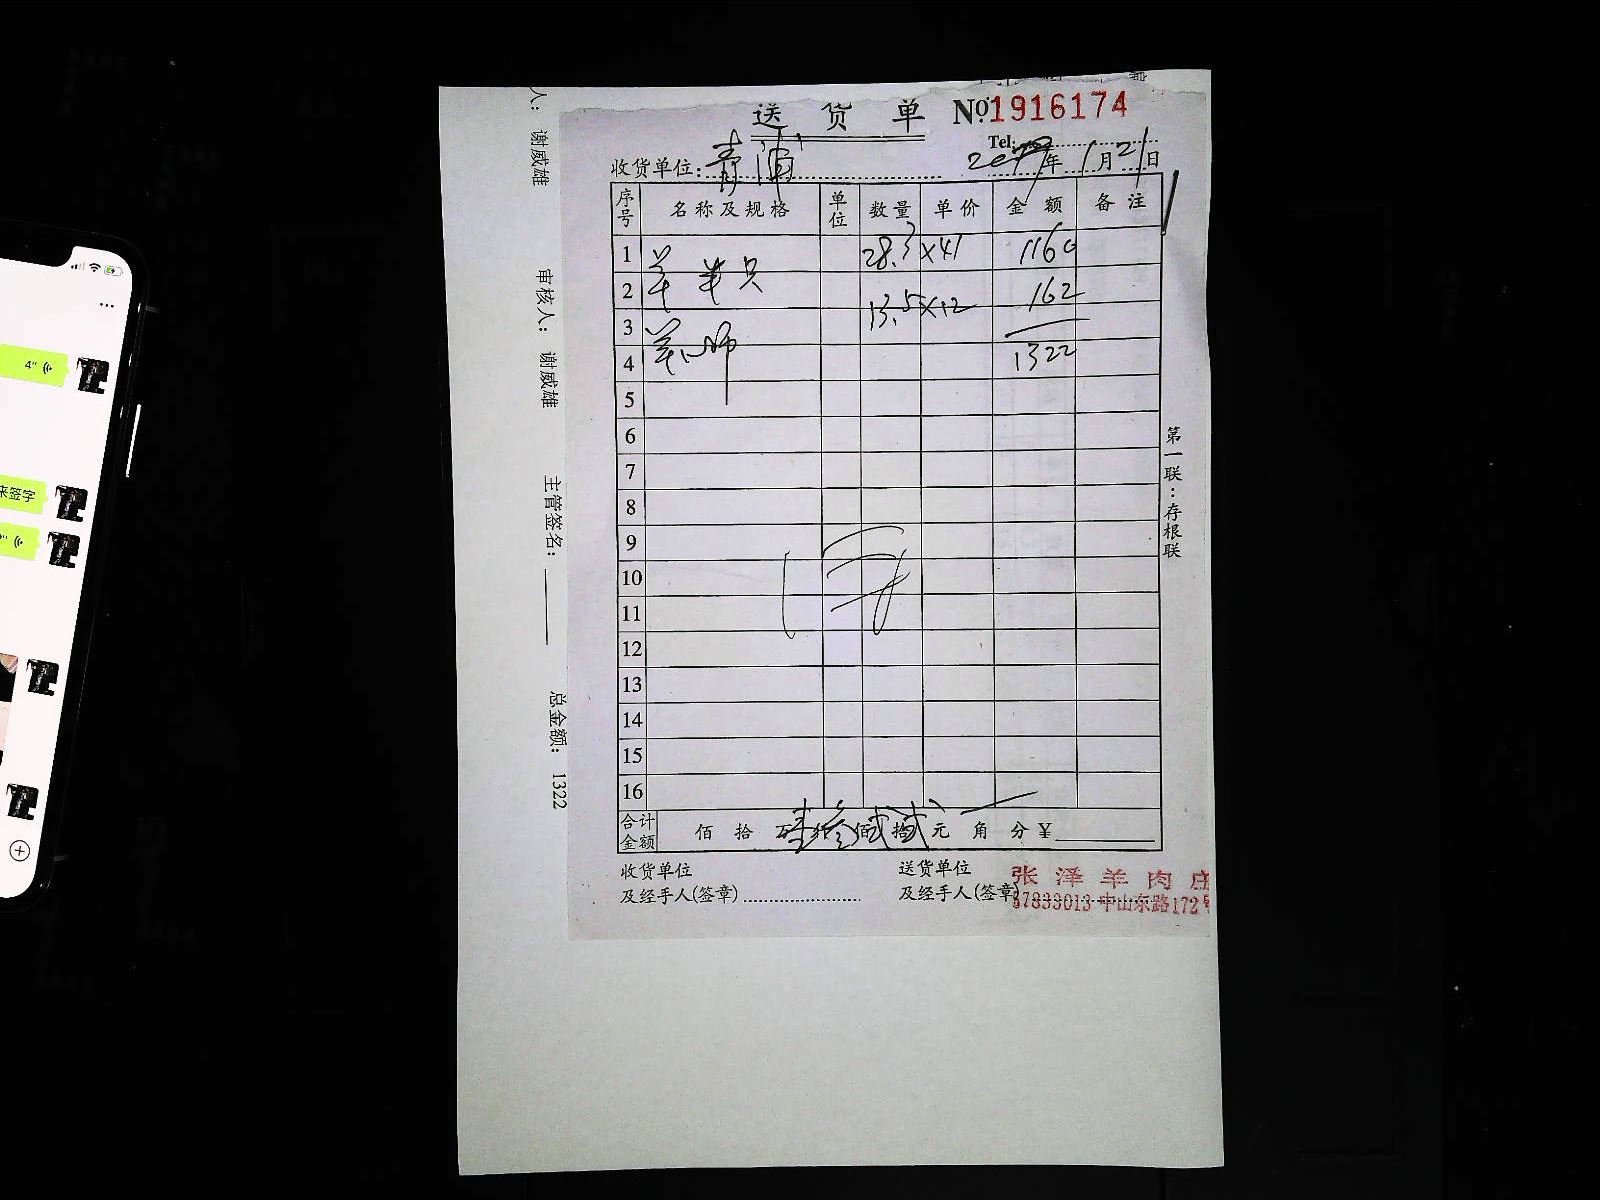 送 货 单 №1916174
Tel:
收货单位: 青浦 年 1月21日
序号 名称及规格 单位 数量 单价 金额 备注
1 28.3 ×41 1160
2 羊 羊只 13.5 ×12 162
3
4 羊心肺 1322
5
6
7
8
9
10
11
12
13
14
15
16
合计金额 佰 拾 万 仟 佰 拾 元 角 分 ¥
壹叁贰贰
收货单位
及经手人(签章)
送货单位
及经手人(签章)
张泽羊肉庄
57833013 中山东路172号
第一联:存根联
人: 谢威雄
审核人: 谢威雄
主管签名:
总金额: 1322
4"
来签字